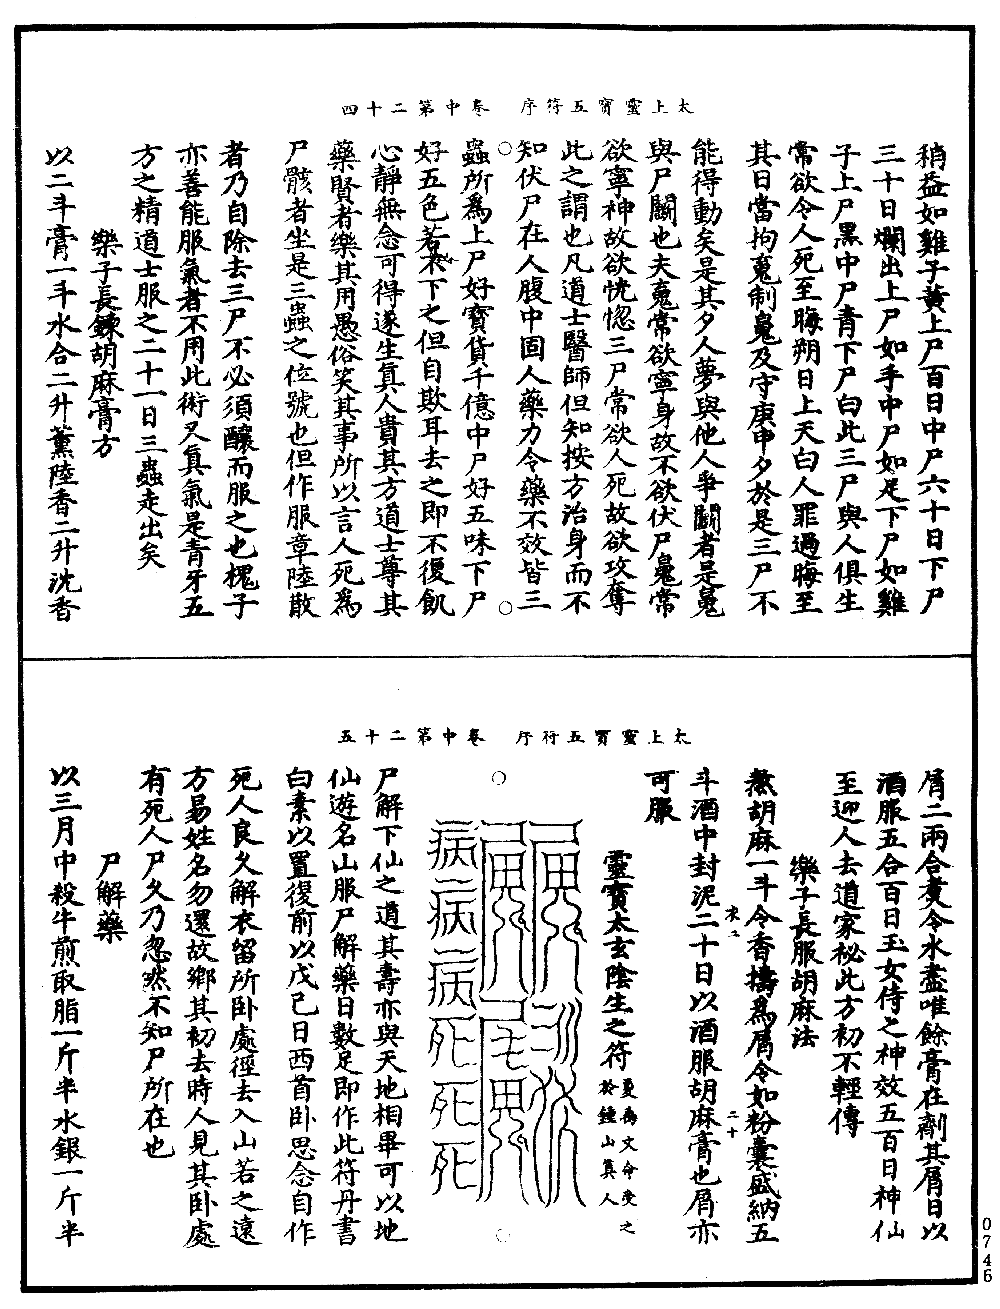 太上靈寶五符序　卷中第二十四
稍益如雞子黃上尸百日中尸六十日下尸
三十日爛出上尸如手中尸如足下尸如雞
子上尸黑中尸青下尸白此三尸與人俱生
常欲令人死至晦朔日上天白人罪過晦至
其日當拘䰟制䰟及守庚申夕於是三尸不
能得動矣是其夕人夢與他人爭鬬者是䰟
與尸鬬也夫䰟常欲寧身故不欲伏尸䰟常
欲寧神故欲恍惚三尸常欲人死故欲攻奪
此之謂也凡道士醫師但知按方治身而不
知伏尸在人腹中固人藥力令藥不效皆三
蟲所為上尸好寶貨千億中尸好五味下尸
好五色若不下之但自欺耳去之即不復飢
心靜無念可得遂生真人貴其方道士尊其
藥賢者樂其用愚俗笑其事所以言人死為
尸骸者坐是三蟲之位號也但作服章陸散
者乃自除去三尸不必須釀而服之也槐子
亦善能服氣者不用此術又真氣是青牙五
方之精道士服之二十一日三蟲走出矣
樂子長鍊胡麻膏方
以二斗膏一斗水合二升薰陸香二升沈香
太上靈寶五符序　卷中第二十五
屑二兩合煑令水盡唯餘膏在劑其屑日以
酒服五合百日玉女侍之神效五百日神仙
至迎人去道家祕此方初不輕傳
樂子長服胡麻法
熬胡麻一斗令香擣為屑令如粉囊盛納五
斗酒中封泥二十日以酒服胡麻膏也屑亦
可服
靈寶太玄陰生之符夏禹文命受之
於鍾山真人
尸解下仙之道其壽亦與天地相畢可以地
仙遊名山服尸解藥日數足即作此符丹書
白素以置復前以戊己日西首卧思念自作
死人良久解衣留所卧處徑去入山若之遠
方易姓名勿還故鄉其初去時人見其卧處
有死人尸久乃忽然不知尸所在也
尸解藥
以三月中殺牛煎取脂一斤半水銀一斤半
0746